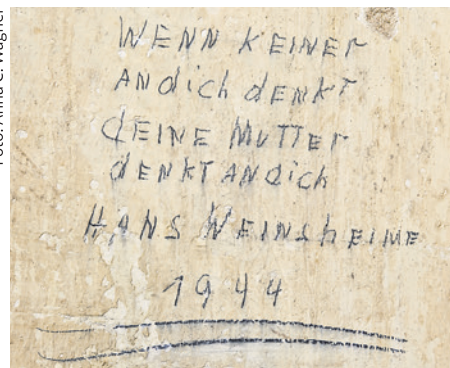 Foto: Anna C. Wagner
WENN KEINER
ANdich dENKT
dEINE MUTTEr
dENKT ANdich
HANS WEINShEIME
1944